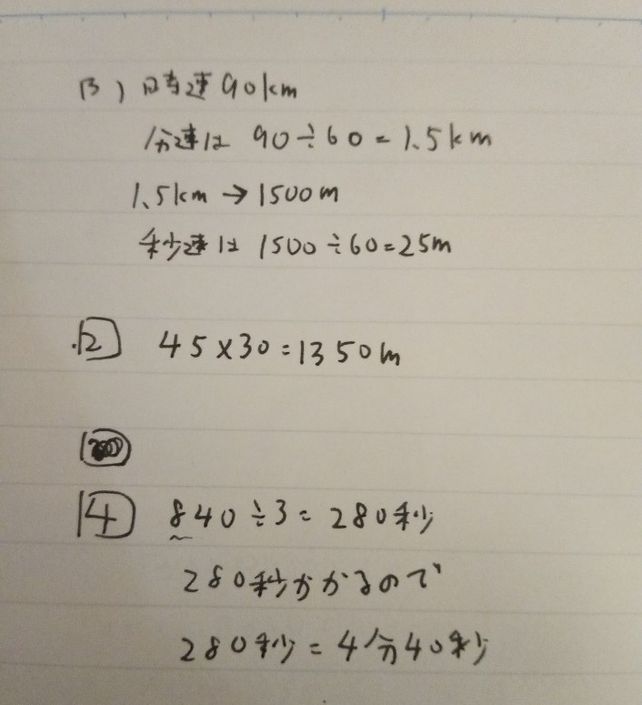 (3) 時速90km
分速は 90÷60=1.5km
1.5km→1500m
秒速は 1500÷60=25m
2 45×30=1350m
4 840÷3=280秒
280秒かかるので
280秒=4分40秒